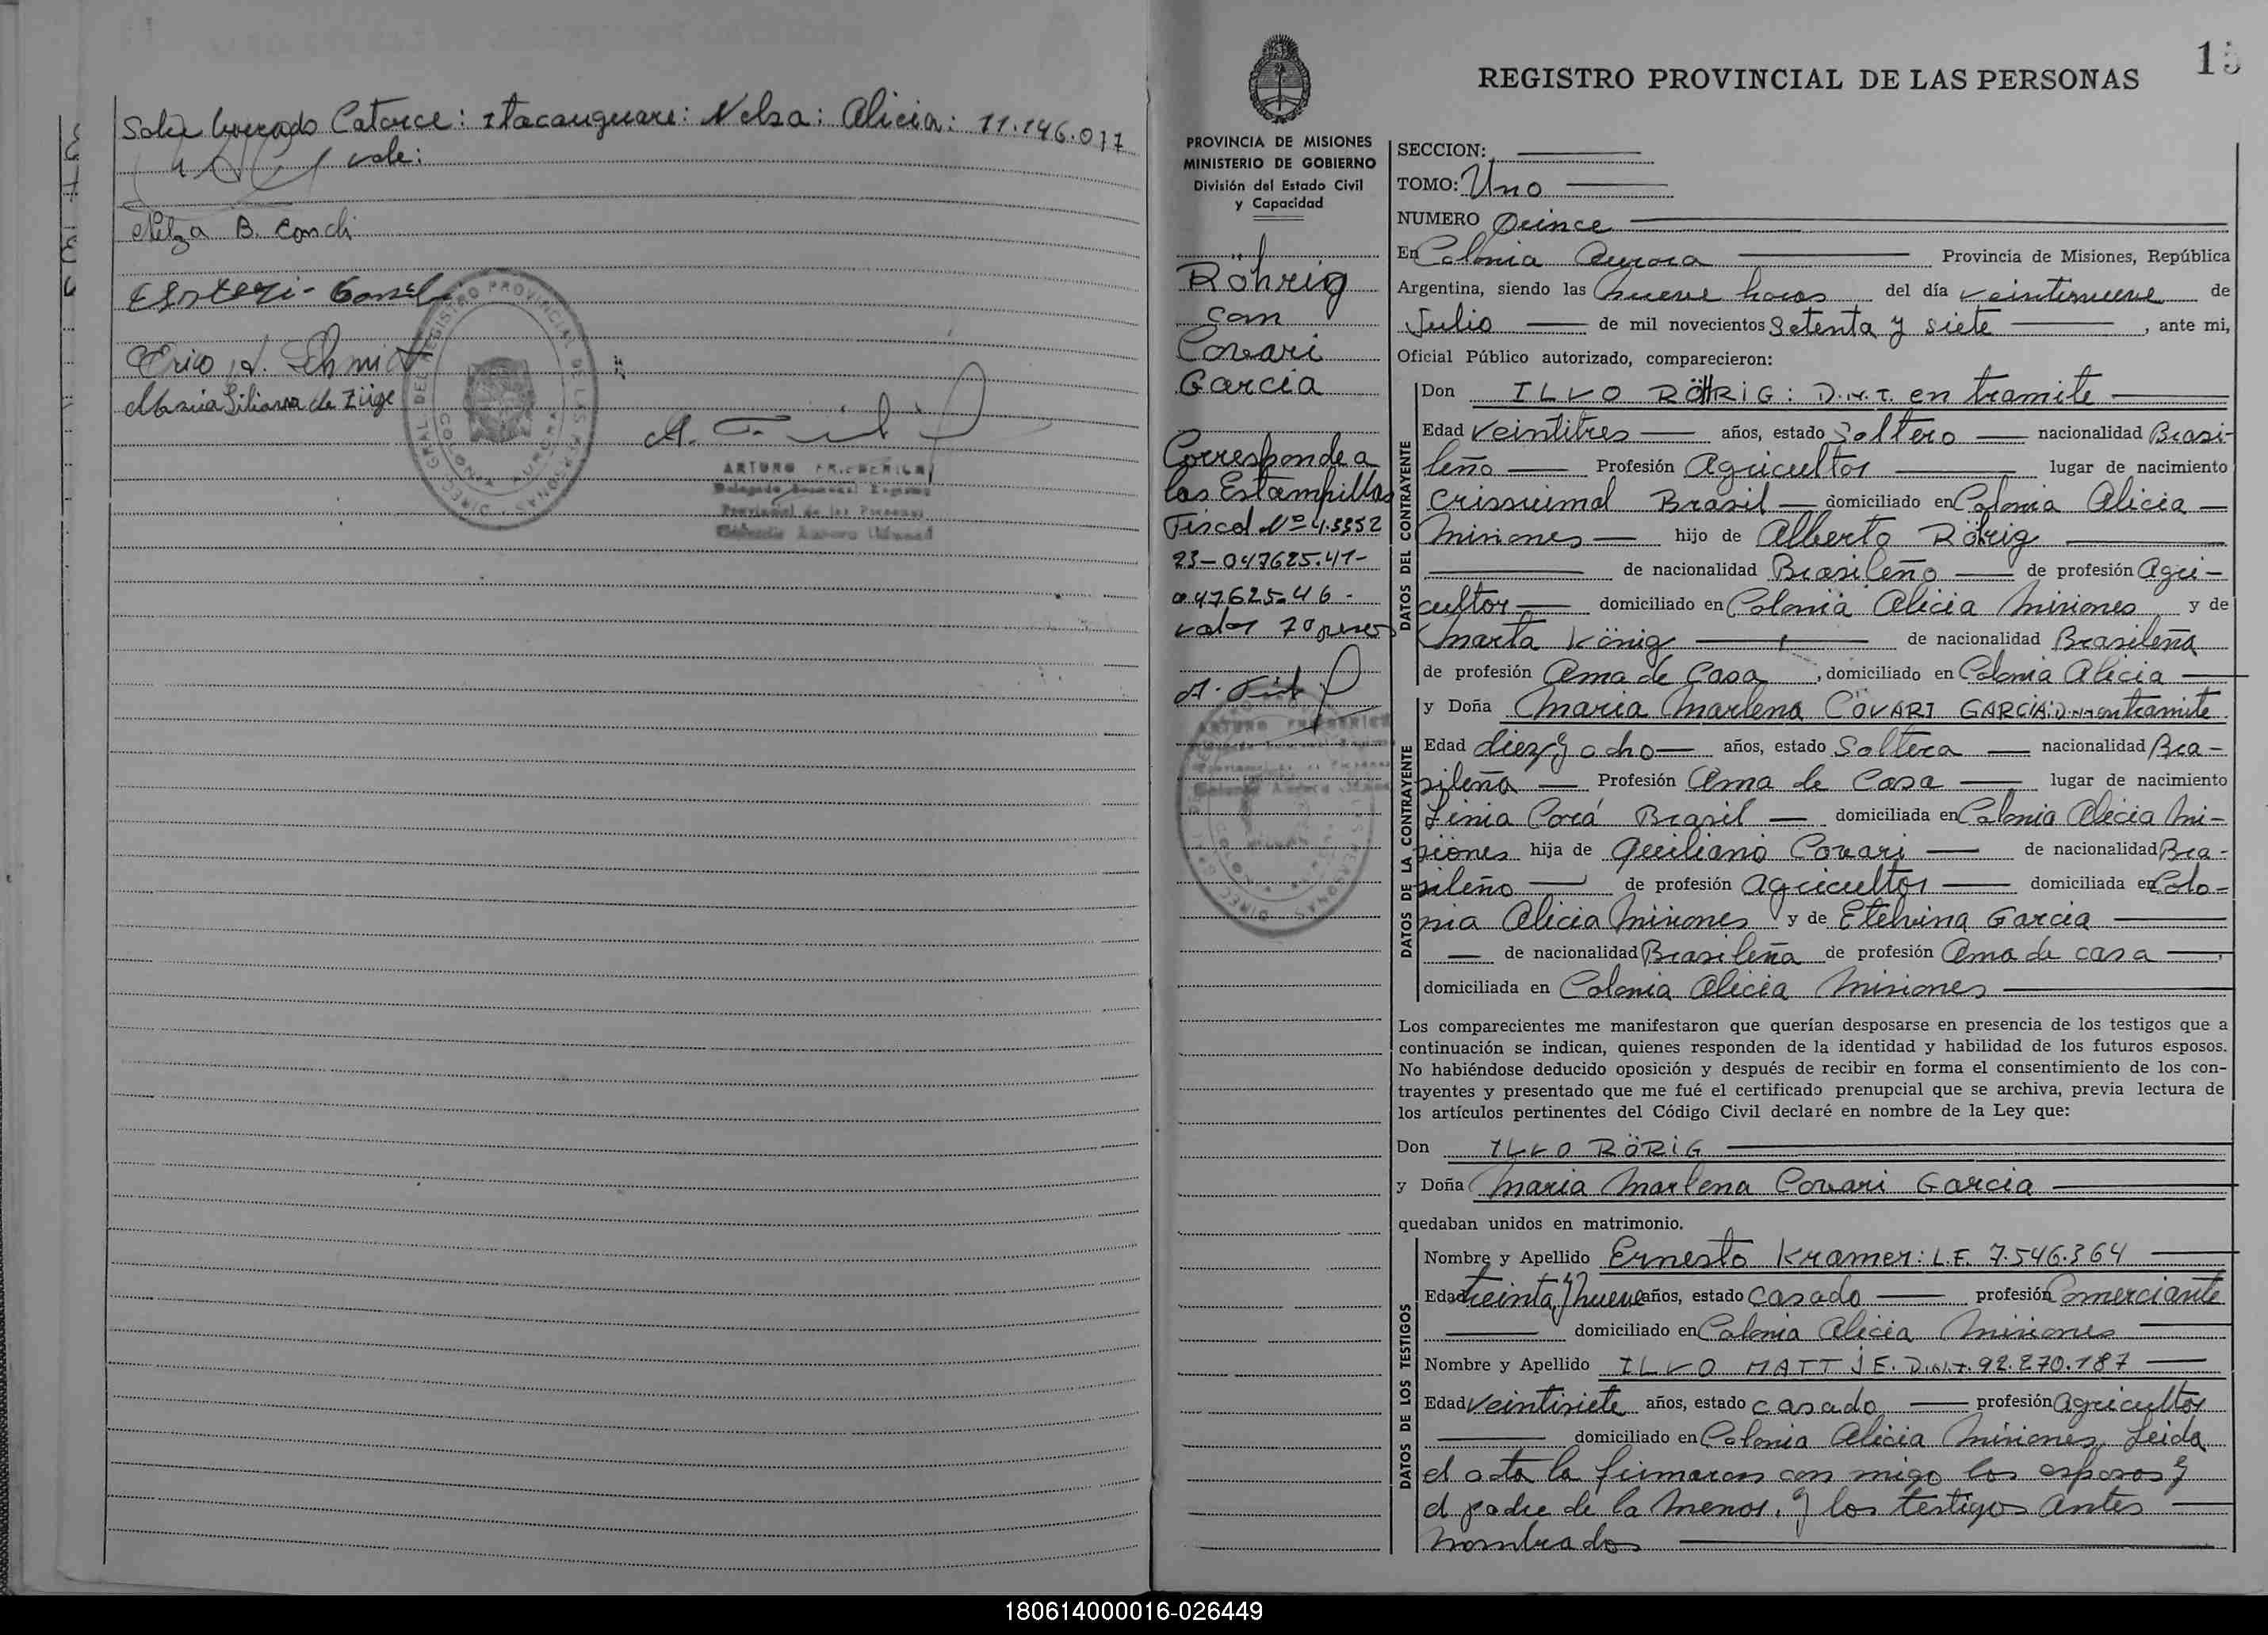 Sobre borrado Catorce: Itacauguare: Nelsa: Alicia: 11.146.017
vale:
Nelza B. Conch
Erico A. Schmidt
Maria Liliana de Züge
A. Fried
ARTURO FRIEDERICH
Provincial de las Personas
Colonia Aurora
15
REGISTRO PROVINCIAL DE LAS PERSONAS
PROVINCIA DE MISIONES
MINISTERIO DE GOBIERNO
División del Estado Civil
y Capacidad
Röhrig
con
Covari
Garcia
Corresponde a
las Estampillas
Fiscal Nº 4.3352
23-047625.41-
a 47625.46-
valor 70 pesos
SECCION:
TOMO: Uno
NUMERO Quince
En Colonia Aurora Provincia de Misiones, República
Argentina, siendo las nueve horas del día veintinueve de
Julio de mil novecientos Setenta y siete, ante mi,
Oficial Público autorizado, comparecieron:
DATOS DEL CONTRAYENTE
Don ILVO RÖHRIG: D.N.I. en tramite
Edad Veintitres años, estado Soltero nacionalidad Brasi-
leño Profesión Agricultor lugar de nacimiento
Crissiumal Brasil domiciliado en Colonia Alicia
Misiones hijo de Alberto Röhrig
de nacionalidad Brasileño de profesión Agri-
cultor domiciliado en Colonia Alicia Misiones y de
Marta König de nacionalidad Brasileña
de profesión Ama de Casa, domiciliado en Colonia Alicia
DATOS DE LA CONTRAYENTE
y Doña Maria Marlena COVARI GARCIA: D.N.I. en tramite
Edad diez y ocho años, estado Soltera nacionalidad Bra-
sileña Profesión Ama de Casa lugar de nacimiento
Linia Corá Brasil domiciliada en Colonia Alicia Mi-
siones hija de Quiliano Covari de nacionalidad Bra-
sileño de profesión agricultor domiciliada en Colo-
nia Alicia Misiones y de Etelvina Garcia
de nacionalidad Brasileña de profesión Ama de casa
domiciliada en Colonia Alicia Misiones
Los comparecientes me manifestaron que querían desposarse en presencia de los testigos que a
continuación se indican, quienes responden de la identidad y habilidad de los futuros esposos.
No habiéndose deducido oposición y después de recibir en forma el consentimiento de los con-
trayentes y presentado que me fué el certificado prenupcial que se archiva, previa lectura de
los artículos pertinentes del Código Civil declaré en nombre de la Ley que:
Don ILVO RÖRIG
y Doña Maria Marlena Covari Garcia
quedaban unidos en matrimonio.
DATOS DE LOS TESTIGOS
Nombre y Apellido Ernesto Kramer: L.E. 7.546.364
Edad treinta y nueve años, estado casado profesión Comerciante
domiciliado en Colonia Alicia Misiones
Nombre y Apellido ILVO MATTJE. D.N.I. 92.270.187
Edad Veintisiete años, estado casado profesión agricultor
domiciliado en Colonia Alicia Misiones, Leida
el acta la firmaron con migo los esposos y
el padre de la menor, y los testigos antes
nombrados
180614000016-026449